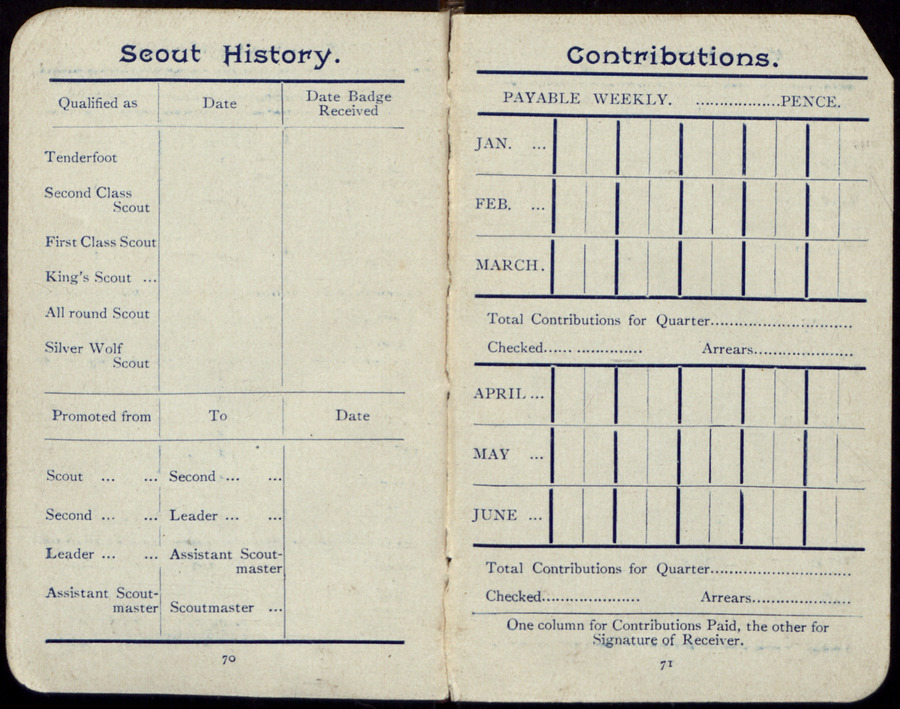 Scout History.
Qualified as Date Date Badge Received
Tenderfoot
Second Class
Scout
First Class Scout
King's Scout ...
All round Scout
Silver Wolf
Scout
Promoted from To Date
Scout ... ... Second ... ...
Second ... ... Leader ... ...
Leader ... ... Assistant Scout-
master
Assistant Scout-
master Scoutmaster ...
70
Contributions.
PAYABLE WEEKLY. ..................PENCE.
JAN. ...
FEB. ...
MARCH.
Total Contributions for Quarter..............................
Checked...... .............. Arrears.....................
APRIL ...
MAY ...
JUNE ...
Total Contributions for Quarter..............................
Checked..................... Arrears.....................
One column for Contributions Paid, the other for
Signature of Receiver.
71